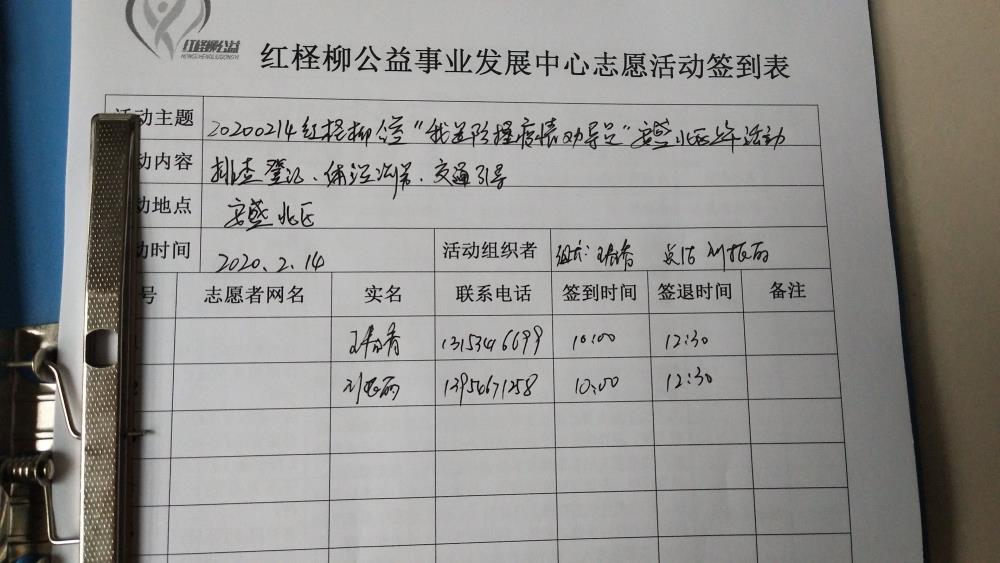 红柽柳公益
HONGCHENGLIUGONGYI
红柽柳公益事业发展中心志愿活动签到表
活动主题 20200214红柽柳公益“我是防控疫情劝导员”安盛北区上午活动
动内容 排查登记、保洁、交通引导
动地点 安盛北区
动时间 2020.2.14 活动组织者 组长:王春香
号 志愿者网名 实名 联系电话 签到时间 签退时间 备注
王春香 13153466699 10:00 12:30
13954671258 10:00 12:30